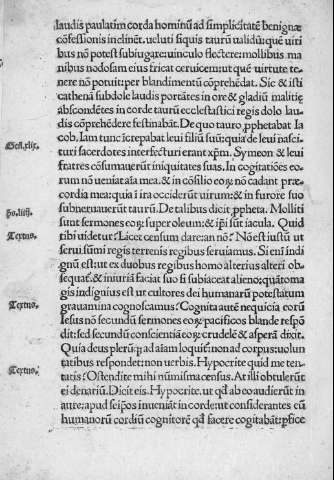 laudis paulatim corda hominũ ad simplicitatẽ benignæ
cõfessionis inclinẽt. ueluti siquis taurũ ualidũ: quẽ uiri
bus nõ potest subiugare: uinculo flectere: mollibus ma
nibus nodosam eius tricat ceruicem: ut quẽ uirtute te-
nere nõ potuit: per blandimentũ cõprehẽdat. Sic & isti
cathenã subdole laudis portãtes in ore & gladiũ malitiæ
abscõdẽtes in corde taurũ ecclesiastici regis dolo lau-
dis cõprẽhẽdere festinabãt. De quo tauro ꝓphetabat Ia
cob. Iam tunc ĩcrepabat leui filiũ suũ: quia de leui nasci-
Gen. xlix.
turi sacerdotes interfecturi erant xp̃m. Symeon & leui
fratres cõsumauerũt iniquitates suas. In cogitatiões eo-
rum nõ ueniat aĩa mea: & in cõsilio eoꝝ nõ cadant præ-
cordia mea: quia ĩ ira occiderũt uirum: & in furore suo
subneruauerũt taurũ. De talibus dicit ꝓpheta. Molliti
ps. liiij.
sunt sermones eoꝝ super oleum: & ip̃i sũt iacula. Quid
Textus.
tibi uidetur? Licet censum dare: an nõ? Nõ est iustũ ut
serui sũmi regis terrenis regibus seruiamus. Si eni indi-
gnũ est: ut ex duobus regibus homo alterius alteri ob-
sequat̃: & iniuriã faciat suo si subiaceat alieno: quãtoma
gis indignius est ut cultores dei humanarũ potestatum
grauamina cognoscamus? Cognita autẽ nequicia eorũ
Textus.
Iesus nõ secundũ sermones eoꝝ pacificos blande respõ
dit: sed secundũ conscientiã eoꝝ crudelẽ & asperã dixit.
Quia deus plerũꝗ ad aĩam loquit̃: non ad corpus: uolun
tatibus respondet: non uerbis. Hypocrite quid me ten-
Textus.
tatis? Ostendite mihi numisma census. At illi obtulerũt
ei denariũ. Dicit eis. Hypocrite. ut qd̃ ab eo audierũt in
aure: apud seip̃os inueniãt in corde: ut considerantes eũ
humanorũ cordiũ cognitorẽ qd̃ facere cogitabãt: ꝑfice